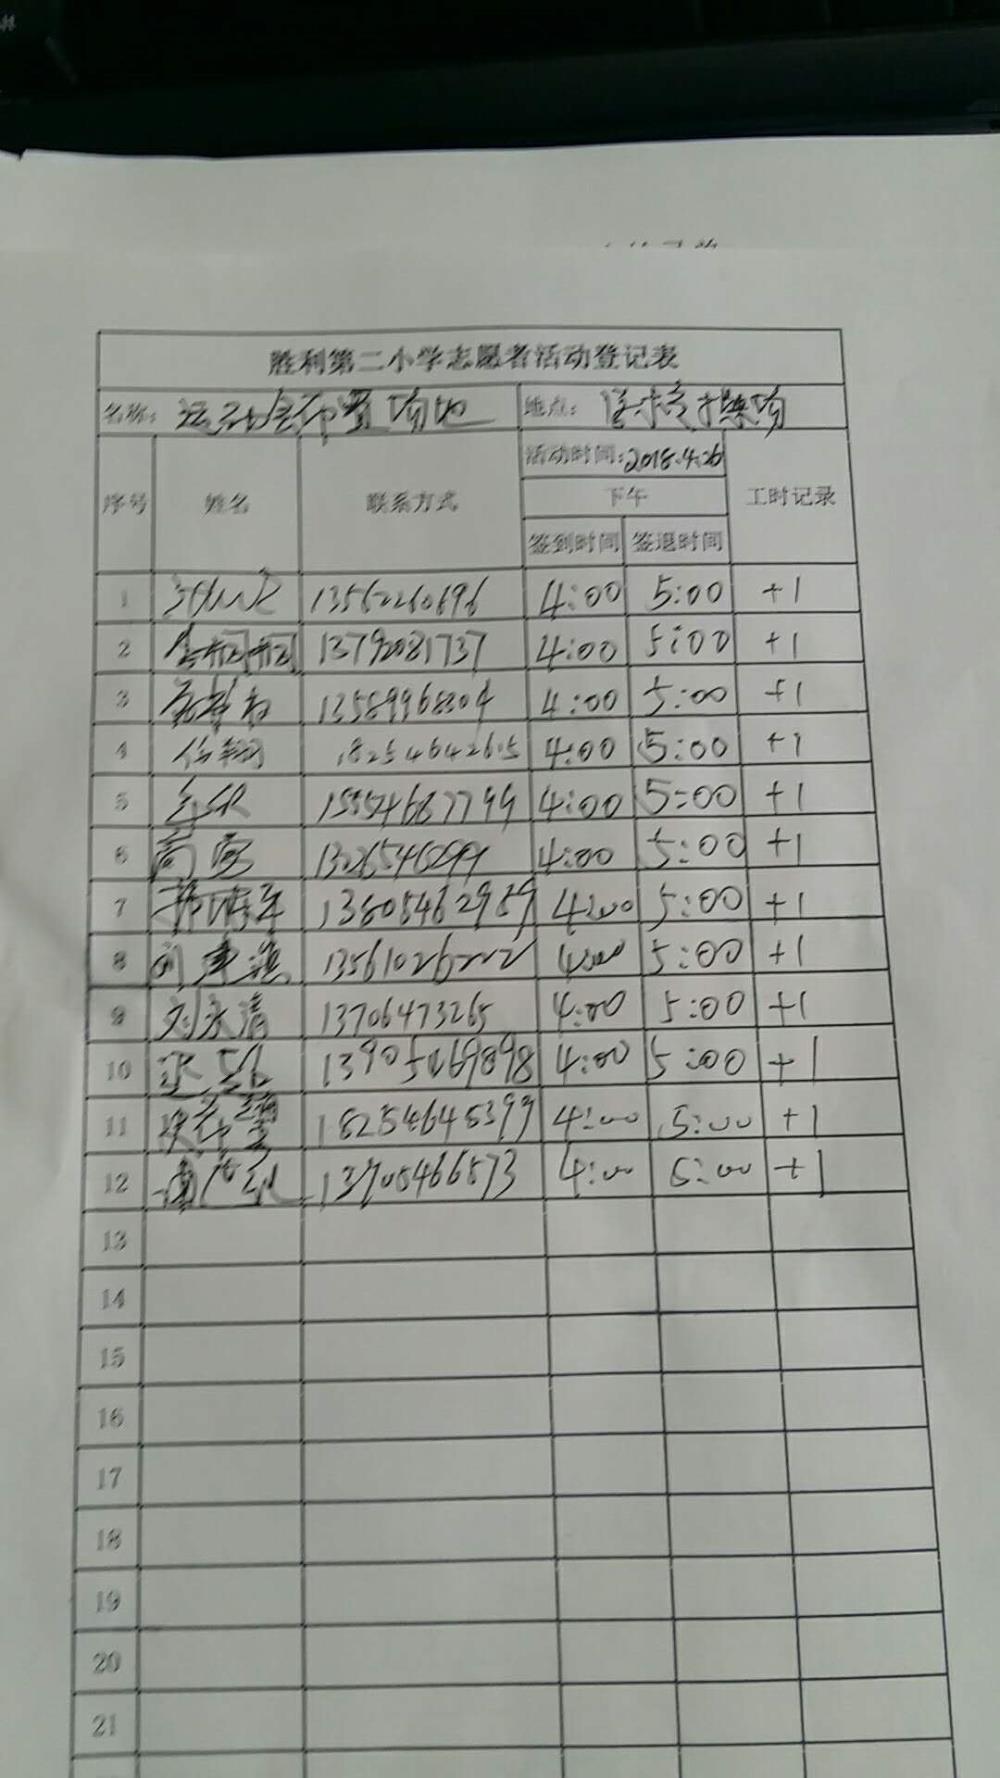 胜利第二小学志愿者活动登记表
名称: 运动会布置场地 地点: 学校操场
活动时间:2018.4.26
序号 姓名 联系方式 下午 工时记录
签到时间 签退时间
1 4:00 5:00 +1
2 13792081737 4:00 5:00 +1
3 13589968304 4:00 5:00 +1
4 18254642615 4:00 5:00 +1
5 15554687799 4:00 5:00 +1
6 高 4:00 5:00 +1
7 13805462959 4:00 5:00 +1
8 13561026222 4:00 5:00 +1
9 刘永清 13706473265 4:00 5:00 +1
10 13905469898 4:00 5:00 +1
11 18254645399 4:00 5:00 +1
12 13705466573 4:00 5:00 +1
13
14
15
16
17
18
19
20
21